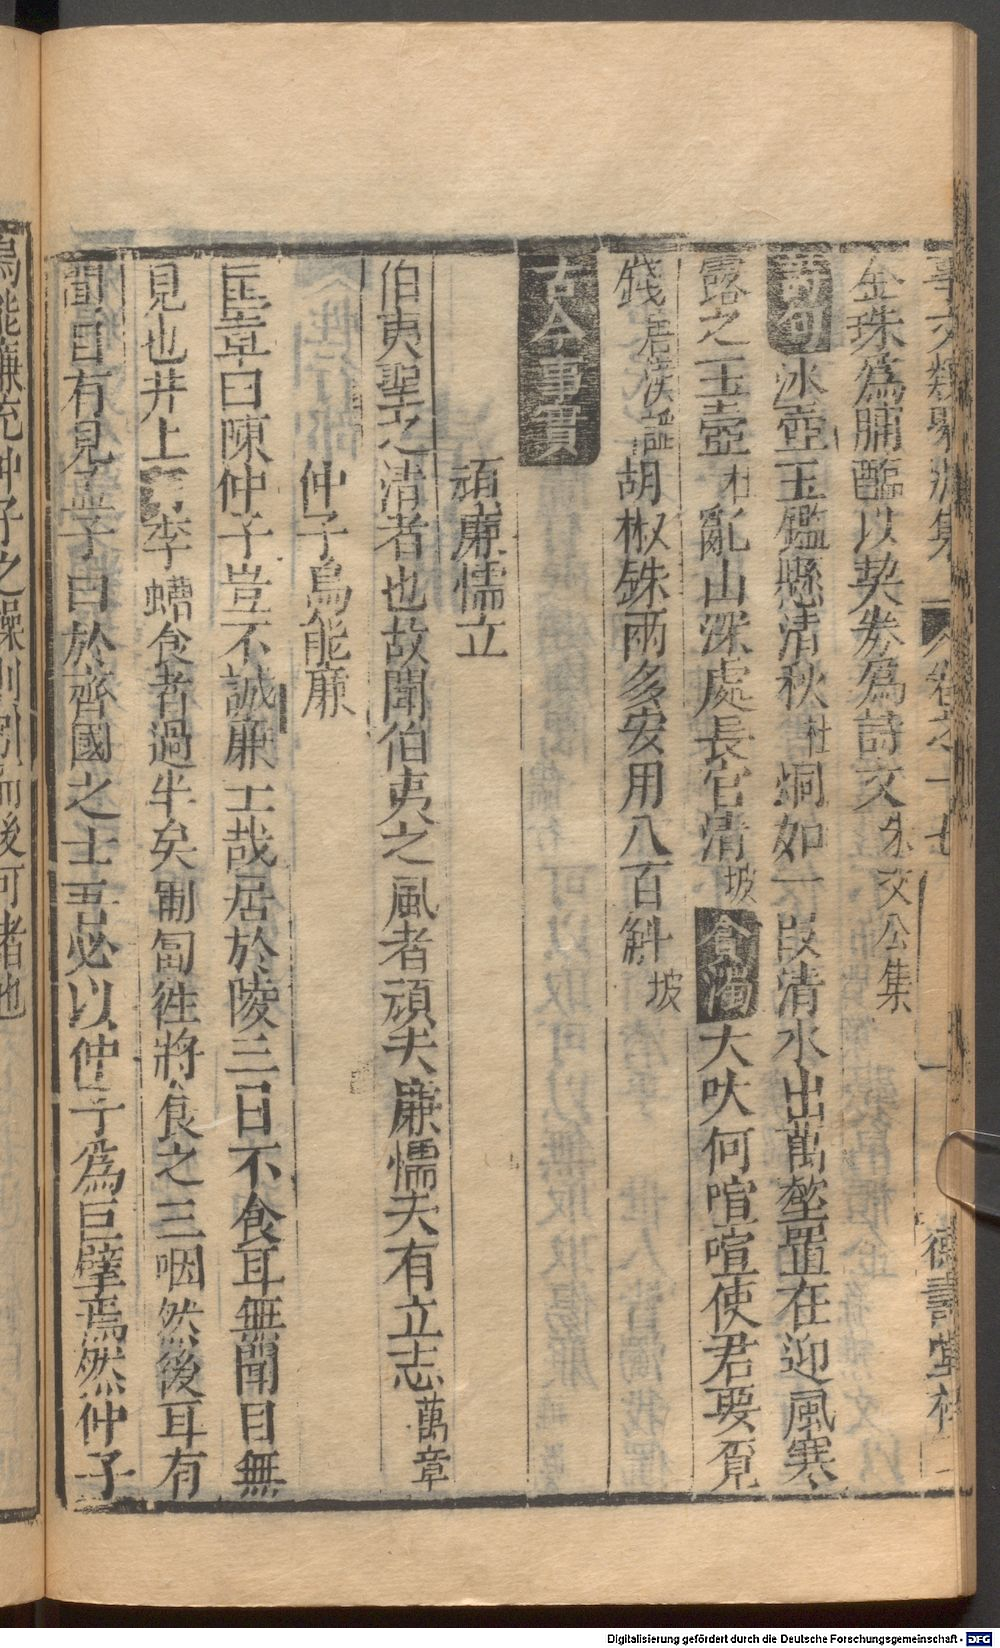 事文類聚別集 卷之二十七 德壽堂梓
金珠爲脯醢以契券爲詩文 朱文公集
詩句 冰壺玉鑑懸清秋 杜 炯如一段清水出萬壑置在迎風寒
露之玉壺 杜 亂山深處長官清 坡 貪濁 大吠何喧喧使君要覓
錢 居侯謐 胡椒銖兩多安用八百斛 坡
古今事實
頑廉懦立
伯夷聖之清者也故聞伯夷之風者頑夫廉懦夫有立志 萬章
仲子烏能廉
匡章曰陳仲子豈不誠廉士哉居於陵三日不食耳無聞目無
見也井上有李螬食者過半矣匍匐往將食之三咽然後耳有
聞目有見孟子曰於齊國之士吾必以仲子爲巨擘焉然仲子
烏能廉充仲子之操則蚓而後可者也
Digitalisierung gefördert durch die Deutsche Forschungsgemeinschaft - DFG